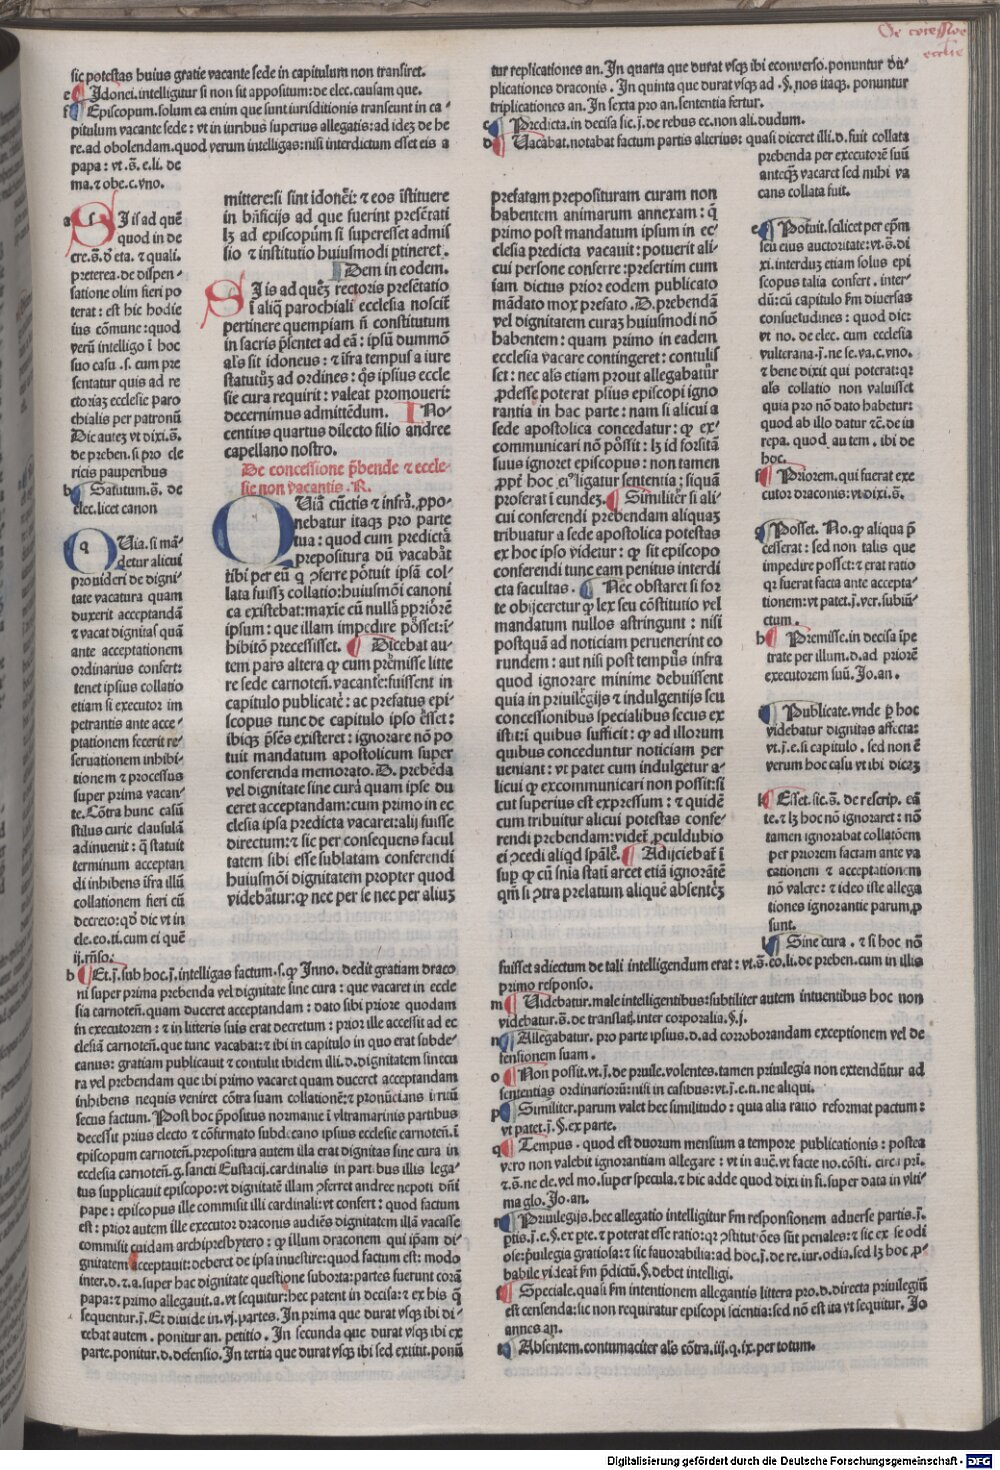 De concessione
ecclesie
sic potestas huius gratie vacante sede in capitulum non transiret.
e Idonei. intelligitur si non sit appositum: de elec. causam que.
f Episcopum. solum ea enim que sunt iurisditionis transeunt in ca-
pitulum vacante sede: vt in iuribus superius allegatis: ad idez de he
re. ad obolendam. quod verum intelligas: nisi interdictum esset eis a
papa: vt .s̄. e. li. de
ma. ⁊ obe. c. vno.
a SI is ad quē
quod in de
cre. s̄. ð eta. ⁊ quali.
preterea. de dispen-
satione olim fieri po
terat: est hic hodie
ius cōmune: quod
verū intelligo ī hoc
suo casu .s. cum pre
sentatur quis ad re
ctoriaz ecclesie paro
chialis per patronū
Dic autez vt dixi. s̄.
de preben. si pro cle
ricis pauperibus
b Satutum. s̄. de
elec. licet canon
QUia. si mā-
detur alicui
prouideri de digni-
tate vacatura quam
duxerit acceptandā
⁊ vacat dignitas quā
ante acceptationem
ordinarius confert:
tenet ipsius collatio
etiam si executor im
petrantis ante acce-
ptationem fecerit re-
seruationem inhibi-
tionem ⁊ processus
super prima vacan-
te. Cōtra hunc casū
stilus curie clausulā
adinuenit: q̄ statuit
terminum acceptan
di inhibens īfra illū
collationem fieri cū
decreto: qð dic vt in
cle. eo. ti. cum ei quē
ij. rn̄so.
mittere: si sint idonei: ⁊ eos īstituere
in bn̄ficijs ad que fuerint presētati
lz ad episcopū si superesset admis
sio ⁊ institutio huiusmodi ptineret.
Idem in eodem.
SI is ad quez rectoris presētatio
ī aliq̄ parochiali ecclesia noscit̄
pertinere quempiam n̄ constitutum
in sacris p̄sentet ad eā: ipsū dummō
als sit idoneus: ⁊ īfra tempus a iure
statutūz ad ordines: q̄s ipsius eccle
sie cura requirit: valeat promoueri:
decernimus admittēdum. INo-
centius quartus dilecto filio andree
capellano nostro.
De concessione p̄bende ⁊ eccle-
sie non vacantis. R.
QUia cūctis ⁊ infra. ꝓpo-
nebatur itaqz pro parte
tua: quod cum predicta
prepositura dū vacabat
tibi per eū q ꝯferre potuit ipsā col-
lata fuissz collatio: huiusmōi canoni
ca existebat: maxie cū nullū ppriorē
ipsum: que illam impedire posset: ī-
hibitō precessisset. Dicebat au-
tem pars altera qꝫ cum premisse litte
re sede carnoteñ. vacante: fuissent in
capitulo publicate: ac prefatus epi-
scopus tunc de capitulo ipso esset:
ibiqz p̄sēs existeret: ignorare nō po
tuit mandatum apostolicum super
conferenda memorato. D. prebēda
vel dignitate sine cura quam ipse du
ceret acceptandam: cum primo in ec
clesia ipsa predicta vacaret: alij fuisse
directum: ⁊ sic per consequens facul
tatem sibi esse sublatam conferendi
huiusmōi dignitatem propter quod
videbatur: qꝫ nec per se nec per aliuz
b Et. j. sub hoc. j. intelligas factum .s. qꝫ Inno. dedit gratiam draco
ni super prima prebenda vel dignitate sine cura: que vacaret in eccle
sia carnoteñ. quam duceret acceptandam: dato sibi priore quodam
in executorem: ⁊ in litteris suis erat decretum: prior ille accessit ad ec
clesiā carnoteñ. que tunc vacabat: ⁊ ibi in capitulo in quo erat subde-
canus: gratiam publicauit ⁊ contulit ibidem illi. d. dignitatem sinecu
ra vel prebendam que ibi primo vacaret quam duceret acceptandam
inhibens nequis veniret cōtra suam collationē: ⁊ pronūcians irritū
secus factum. Post hoc p̄positus normanie ī vltramarinis partibus
decessit prius electo ⁊ cōfirmato subdecano ipsius ecclesie carnoteñ. ī
episcopum carnoteñ. prepositura autem illa erat dignitas sine cura in
ecclesia carnoteñ. g. sancti Eustacij. cardinalis in partibus illis lega-
tus supplicauit episcopo: vt dignitatē illam ꝯferret andree nepoti dn̄i
pape: episcopus ille commisit illi cardinali: vt confert: quod factum
est: prior autem ille executor draconis audiēs dignitatem illā vacasse
commisit cuidam archipresbytero: qꝫ illum draconem qui ip̄am di-
gnitatem acceptauit: deberet de ipsa inuestire: quod factum est: modo
inter. d. ⁊. a. super hac dignitate questione suborta: partes fuerunt corā
papa: ⁊ primo allegauit. a. vt sequitur: hec patent in decisa: ⁊ ex his q̄
sequentur. j. Et diuide in. vj. partes. In prima que durat vsqz ibi di-
cebat autem. ponitur an. petitio. In secunda que durat vsqz ibi ex
parte. ponitur. d. defensio. In tertia que durat vsqz ibi sed extitit. ponū
tur replicationes an. In quarta que durat vsqz ibi econuerso. ponuntur du-
plicationes draconis. In quinta que durat vsqz ad .§. nos itaqz. ponuntur
triplicationes an. In sexta pro an. sententia fertur.
c Predicta. in decisa sic. j. de rebus ec. non ali. dudum.
d Vacabat. notabat factum partis alterius: quasi diceret illi. d. fuit collata
prebenda per executorē suū
anteqz vacaret sed mihi va
cans collata fuit.
e Potuit. scilicet per epm̄
seu eius auctoritate: vt. s̄. di
xi. interduz etiam solus epi
scopus talia confert. inter-
dū: cū capitulo fm diuersas
consuetudines: quod dic:
vt no. de elec. cum ecclesia
vulterana. j. ne se. va. c. vno.
⁊ bene dixit qui poterat: qz
als collatio non valuisset
quia pro nō dato habetur:
quod ab illo datur ⁊c. de iu
repa. quod autem. ibi de
hoc.
f Priorem. qui fuerat exe
cutor draconis: vt dixi. s̄.
g Posset. No. qꝫ aliqua p̄
cesserat: sed non talis que
impedire posset: ⁊ erat ratio
qz fuerat facta ante accepta-
tionem: vt patet. j. ver. subiū-
ctum.
h Premisse. in decisa īpe
trate per illum. d. ad priorē
executorem suū. Jo. an.
i Publicate. vnde p̄ hoc
videbatur dignitas affecta:
vt. j. e. si capitulo. sed non ē
verum hoc casu vt ibi dicaz
k Esset. sic. s̄. de rescrip. eā
te. ⁊ lz hoc nō ignoraret: nō
tamen ignorabat collatōem
per priorem factam ante va
cationem ⁊ acceptationem
nō valere: ⁊ ideo iste allega
tiones ignorantie parum. ꝓ
sunt.
l Sine cura. ⁊ si hoc nō
prefatam preposituram curam non
habentem animarum annexam: q̄
primo post mandatum ipsum in ec-
clesia predicta vacauit: potuerit ali-
cui persone conferre: presertim cum
iam dictus prior eodem publicato
mādato mox prefato. D. prebendā
vel dignitatem curaz huiusmodi nō
habentem: quam primo in eadem
ecclesia vacare contingeret: contulis
set: nec als etiam prout allegabatur
ꝓdesse poterat psius episcopi igno
rantia in hac parte: nam si alicui a
sede apostolica concedatur: qꝫ ex-
communicari nō possit: lz id forsitā
suus ignoret episcopus: non tamen
ꝓpt̄ hoc ei ligatur sententia: siquā
proferat ī eundez. Similiter si ali-
cui conferendi prebendam aliquaz
tribuatur a sede apostolica potestas
ex hoc ipso videtur: qꝫ sit episcopo
conferendi tunc eam penitus interdi
cta facultas. Nec obstaret si for
te obijceretur qꝫ lex seu cōstitutio vel
mandatum nullos astringunt: nisi
postquā ad noticiam peruenerint eo
rundem: aut nisi post tempus infra
quod ignorare minime debuissent
quia in priuilegijs ⁊ indulgentijs seu
concessionibus specialibus secus ex
istit: ī quibus sufficit: qꝫ ad illorum
quibus conceduntur noticiam per
ueniant: vt patet cum indulgetur a-
licui qꝫ excommunicari non possit: si
cut superius est expressum: ⁊ quidē
cum tribuitur alicui potestas confe-
rendi prebendam: videt̄ ꝓculdubio
ei ꝯcedi aliqd spāle. Adijciebat ī
sup qꝫ cū snia stati arcet etiā ignorātē
qm̄ si ꝯtra prelatum aliquē absentez
fuisset adiectum de tali intelligendum erat: vt. s̄. eo. li. de preben. cum in illis
primo responso.
m Uidebatur. male intelligentibus: subtiliter autem intuentibus hoc non
videbatur. s̄. de translat. inter corporalia. §. j.
n Allegabatur. pro parte ipsius. d. ad corroborandam exceptionem vel de
fensionem suam.
o Non possit. vt. j. de priuile. volentes. tamen priuilegia non extendūtur ad
sententias ordinariorū: nisi in casibus: vt. j. e. ti. ne aliqui.
p Similiter. parum valet hec similitudo: quia alia ratio reformat pactum:
vt patet. j. §. ex parte.
q Tempus. quod est duorum mensium a tempore publicationis: postea
vero non valebit ignorantiam allegare: vt in auē. vt facte no. cōsti. circa pri.
⁊. s̄. ne cle. vel mo. super specula. ⁊ hic adde quod dixi in fi. super data in vlti-
ma glo. Jo. an.
r Priuilegijs. hec allegatio intelligitur fm responsionem aduerse partis. j.
ptis. j. e. §. ex pte. ⁊ poterat esse ratio: qz ꝯstitutōes sūt penales: ⁊ sic ex se odi
ose: p̄uilegia gratiosa: ⁊ sic fauorabilia: ad hoc. j. de re. iur. odia. sed lz hoc. ꝓ-
babile videat̄ fm p̄dictū. §. debet intelligi.
s Speciale. quasi fm intentionem allegantis littera pro. d. directa priuilegiū
est censenda: sic non requiratur episcopi scientia: sed nō est ita vt sequitur. Jo
annes an.
t Absentem. contumaciter als cōtra. iij. q. ix. per totum.
Digitalisierung gefördert durch die Deutsche Forschungsgemeinschaft - DFG